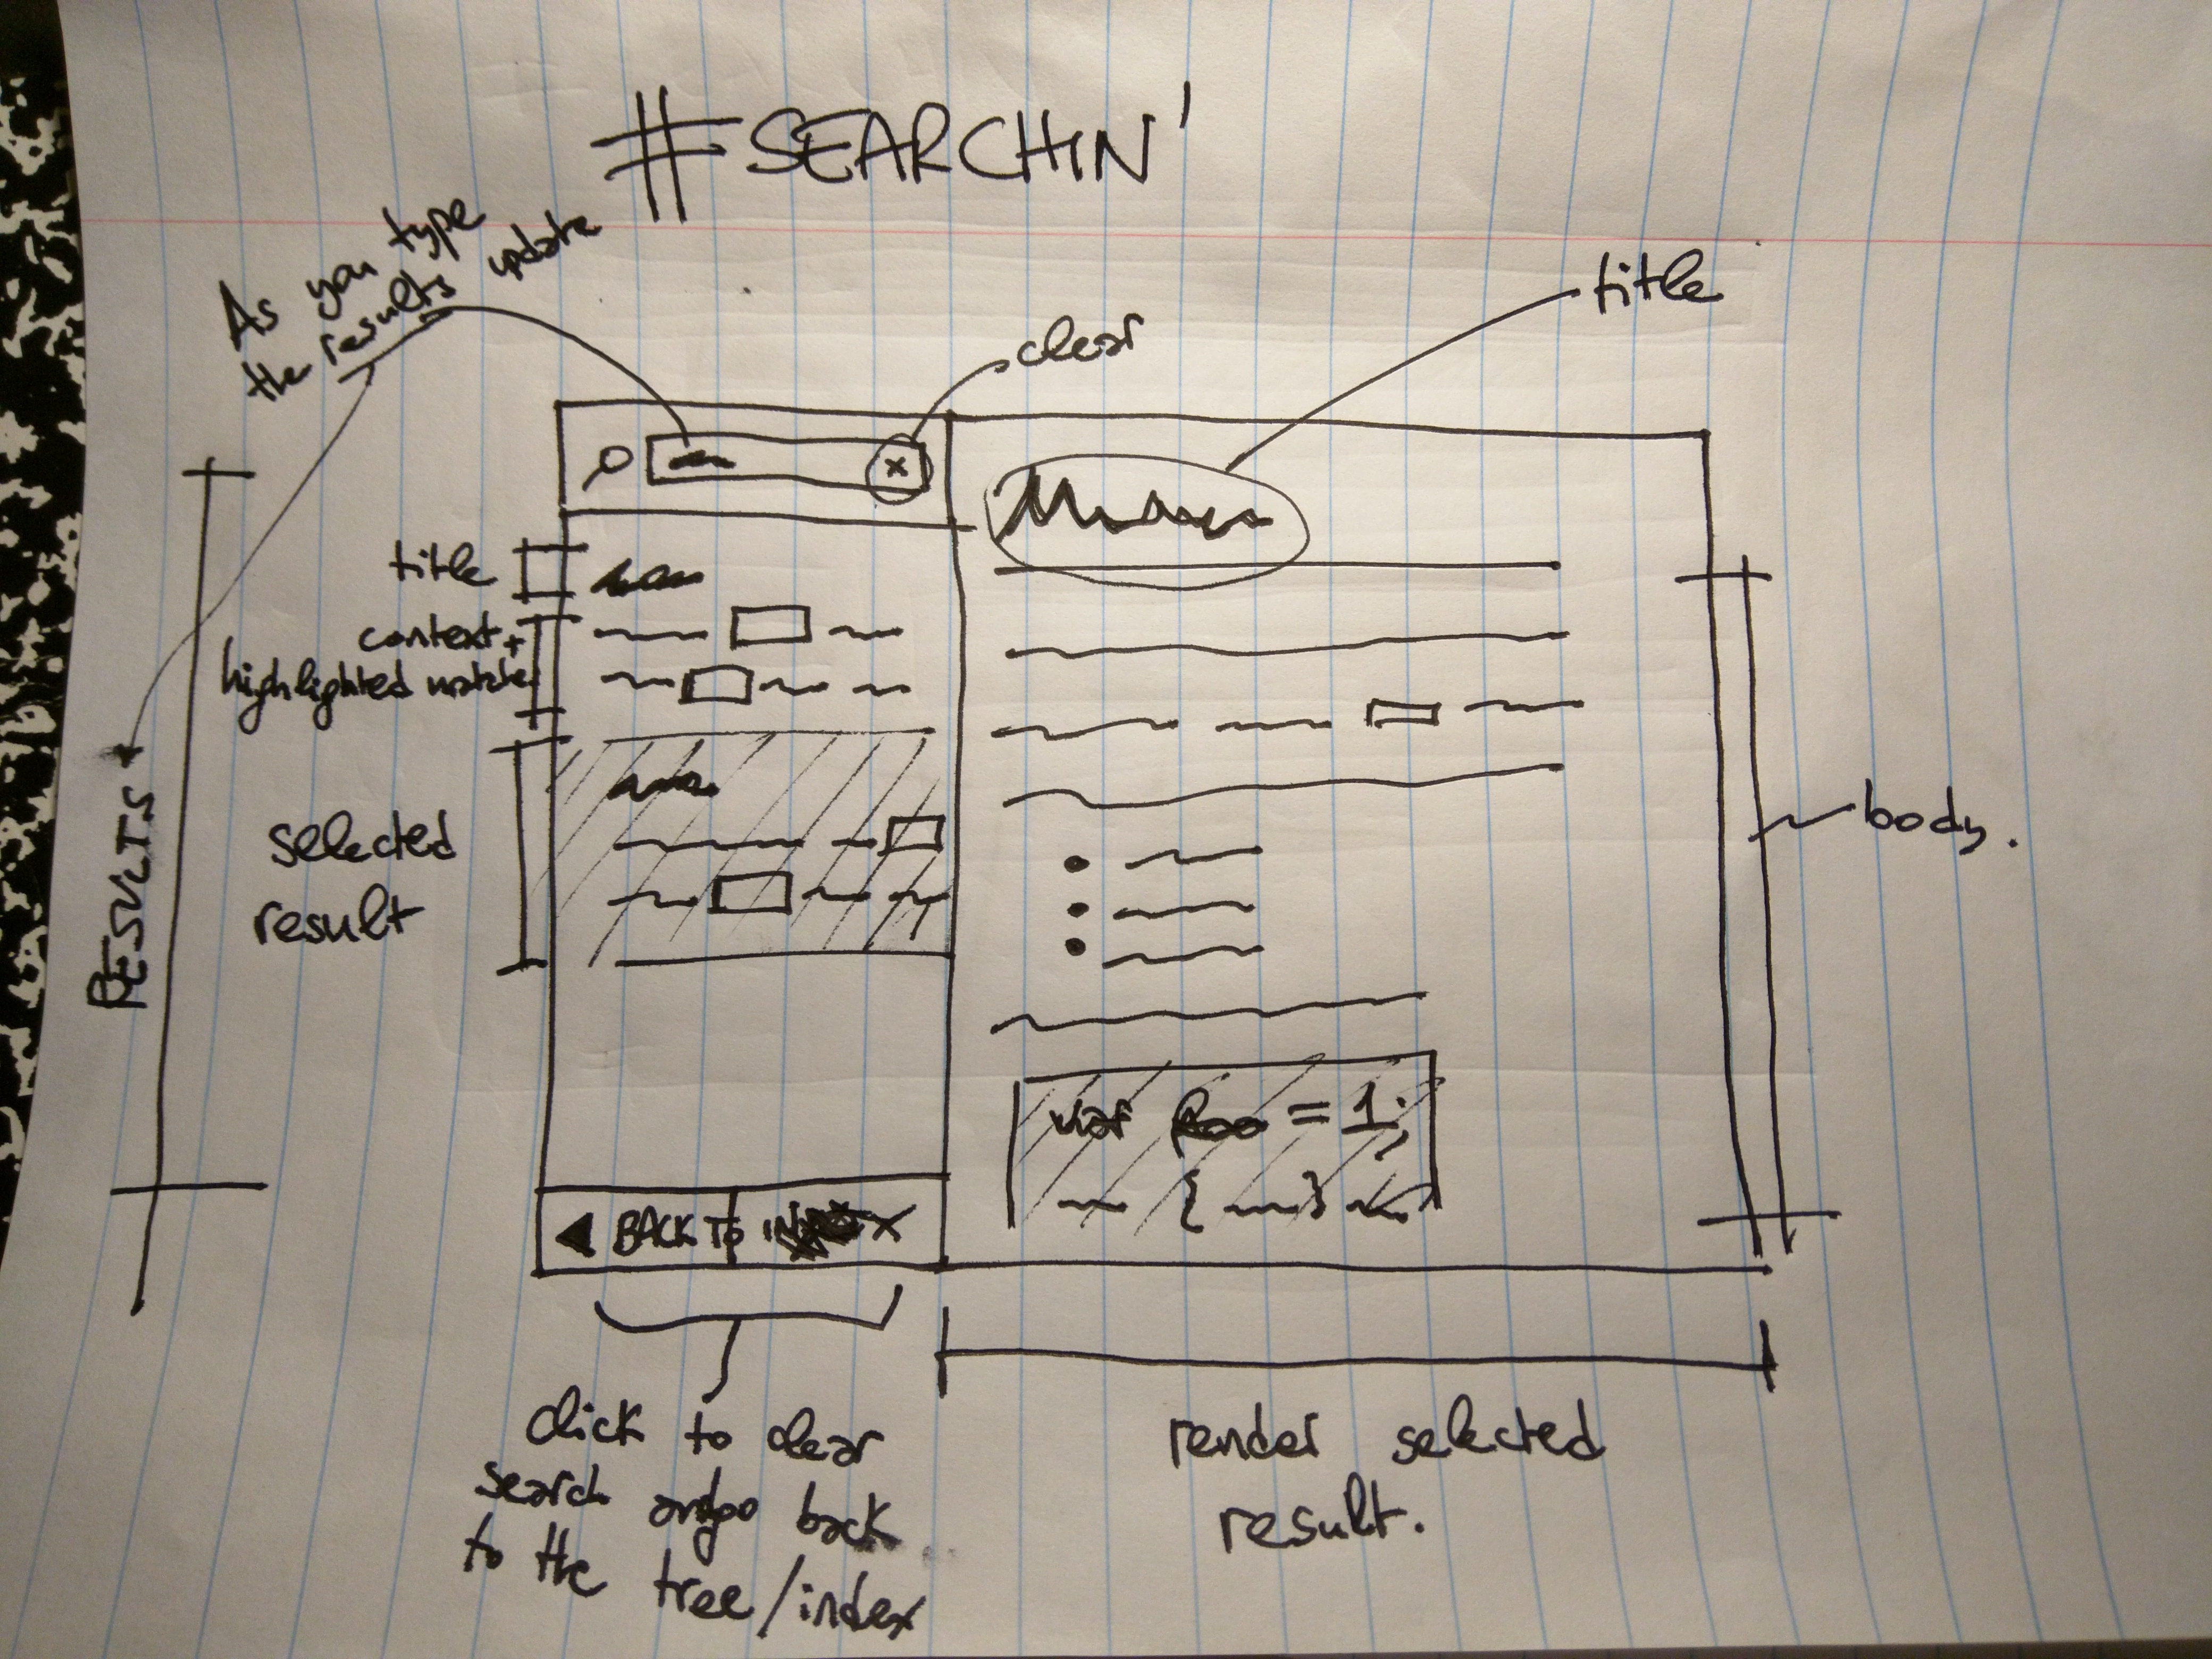 #SEARCHIN'
As you type
the results update
clear
title
x
title
context +
highlighted matches
selected
result
RESULTS
body.
var foo = 1;
{ }
BACK TO INDEX
click to clear
search and go back
to the tree/index
render selected
result.